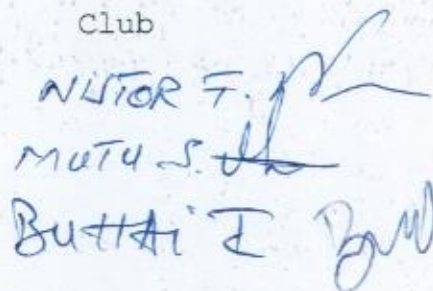 Club
NISTOR F.
MUTU S.
BUHAI I